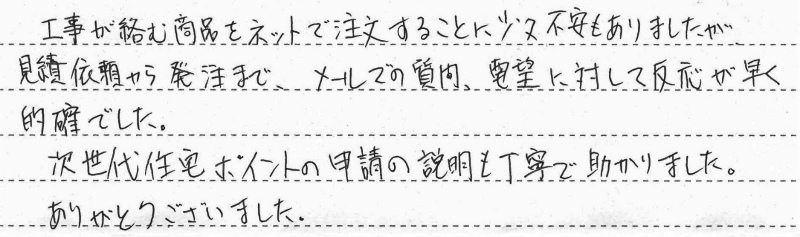 工事が絡む商品をネットで注文することに少々不安もありましたが、
見積依頼から発注まで、メールでの質問、要望に対して反応が早く
的確でした。
次世代住宅ポイントの申請の説明も丁寧で助かりました。
ありがとうございました。